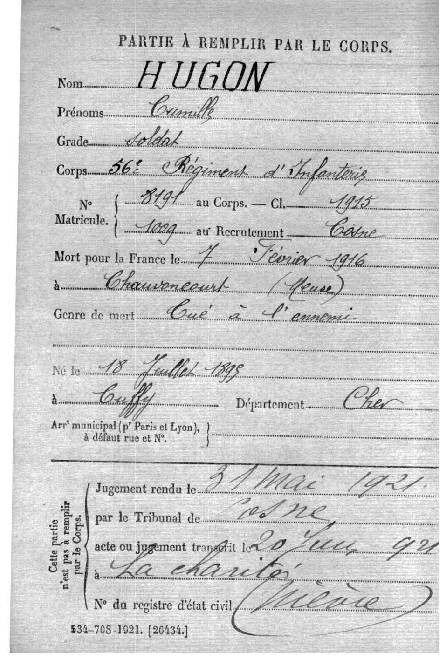 PARTIE À REMPLIR PAR LE CORPS.
Nom HUGON
Prénoms Camille
Grade soldat
Corps 56e Régiment d'Infanterie
N° Matricule. { 8191 au Corps. — Cl. 1915
1009 au Recrutement Cosne
Mort pour la France le 7 Février 1916
à Chauvoncourt (Meuse)
Genre de mort Tué à l'ennemi
Né le 18 Juillet 1895
à Cuffy Département Cher
Arrt municipal (pr Paris et Lyon), à défaut rue et N°. }
Cette partie n'est pas à remplir par le Corps.
Jugement rendu le 31 Mai 1921
par le Tribunal de Cosne
acte ou jugement transcrit le 20 Juin 921
à La charité
N° du registre d'état civil (Nièvre)
534-708-1921. [26434.]